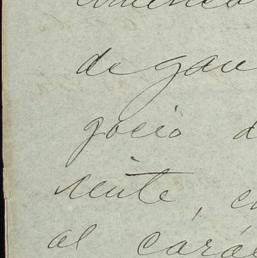 de gan
gocio d
mente, c
al carác